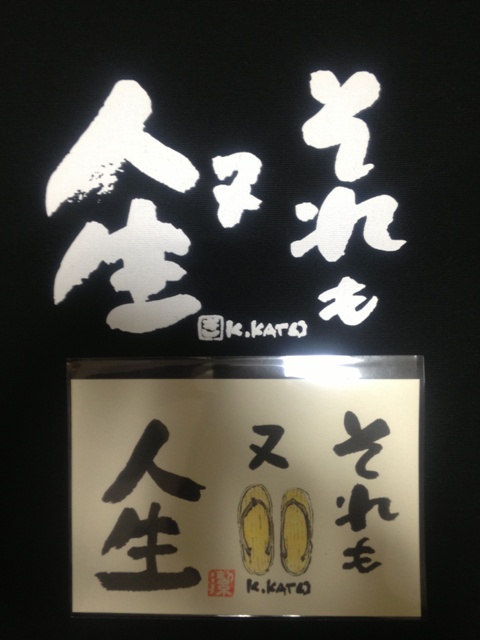 それも
又
人生
K.KATO
それも
又
人生
K.KATO